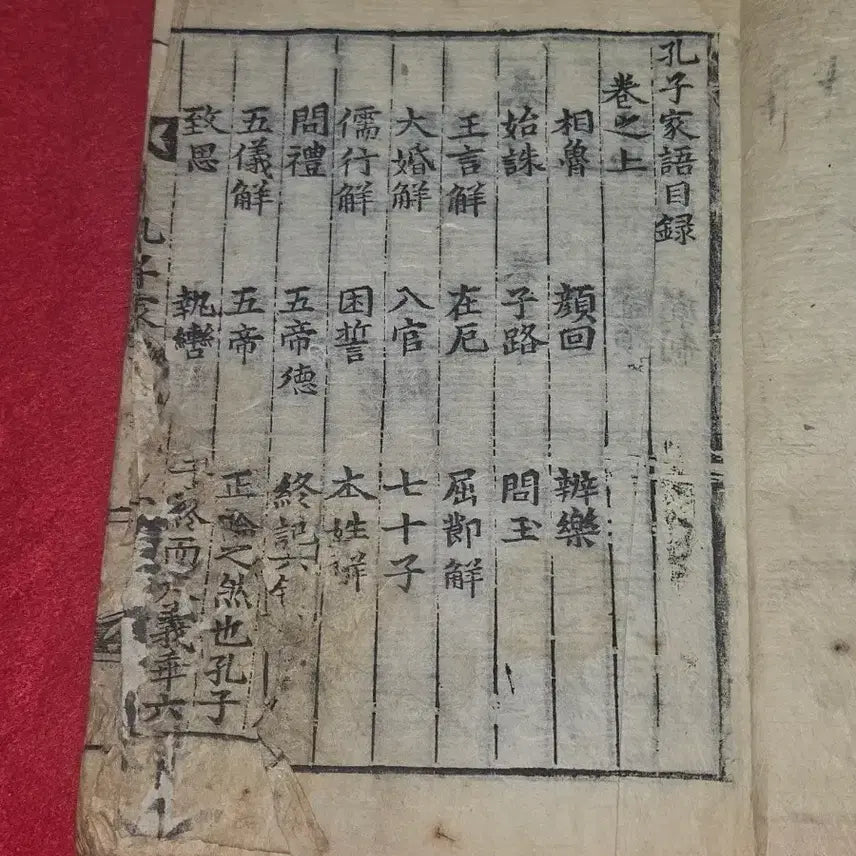 孔子家語目録
卷之上
相魯 顔回 辨樂
始誅 子路 問玉
王言解 在厄 屈節解
大婚解 入官 七十子
儒行解 困誓 本姓解
問禮 五帝德 終記六
五儀解 五帝 正論之然也孔子
致思 執轡 終而大義乖六
孔子家